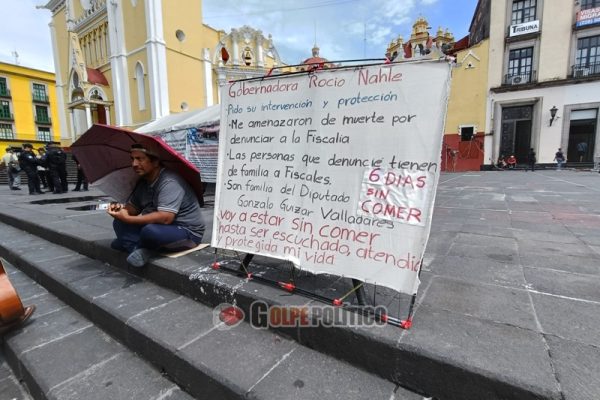 Gobernadora Rocío Nahle
Pido su intervención y protección
- Me amenazaron de muerte por
denunciar a la Fiscalía
- Las personas que denuncie tienen
de familia a Fiscales.
- Son familia del Diputado
Gonzalo Guizar Valladares
voy a estar sin comer
hasta ser escuchado, atendido
protegida mi vida
6 DIAS
SIN
COMER
TRIBUNA
GOLPEPOLÍTICO